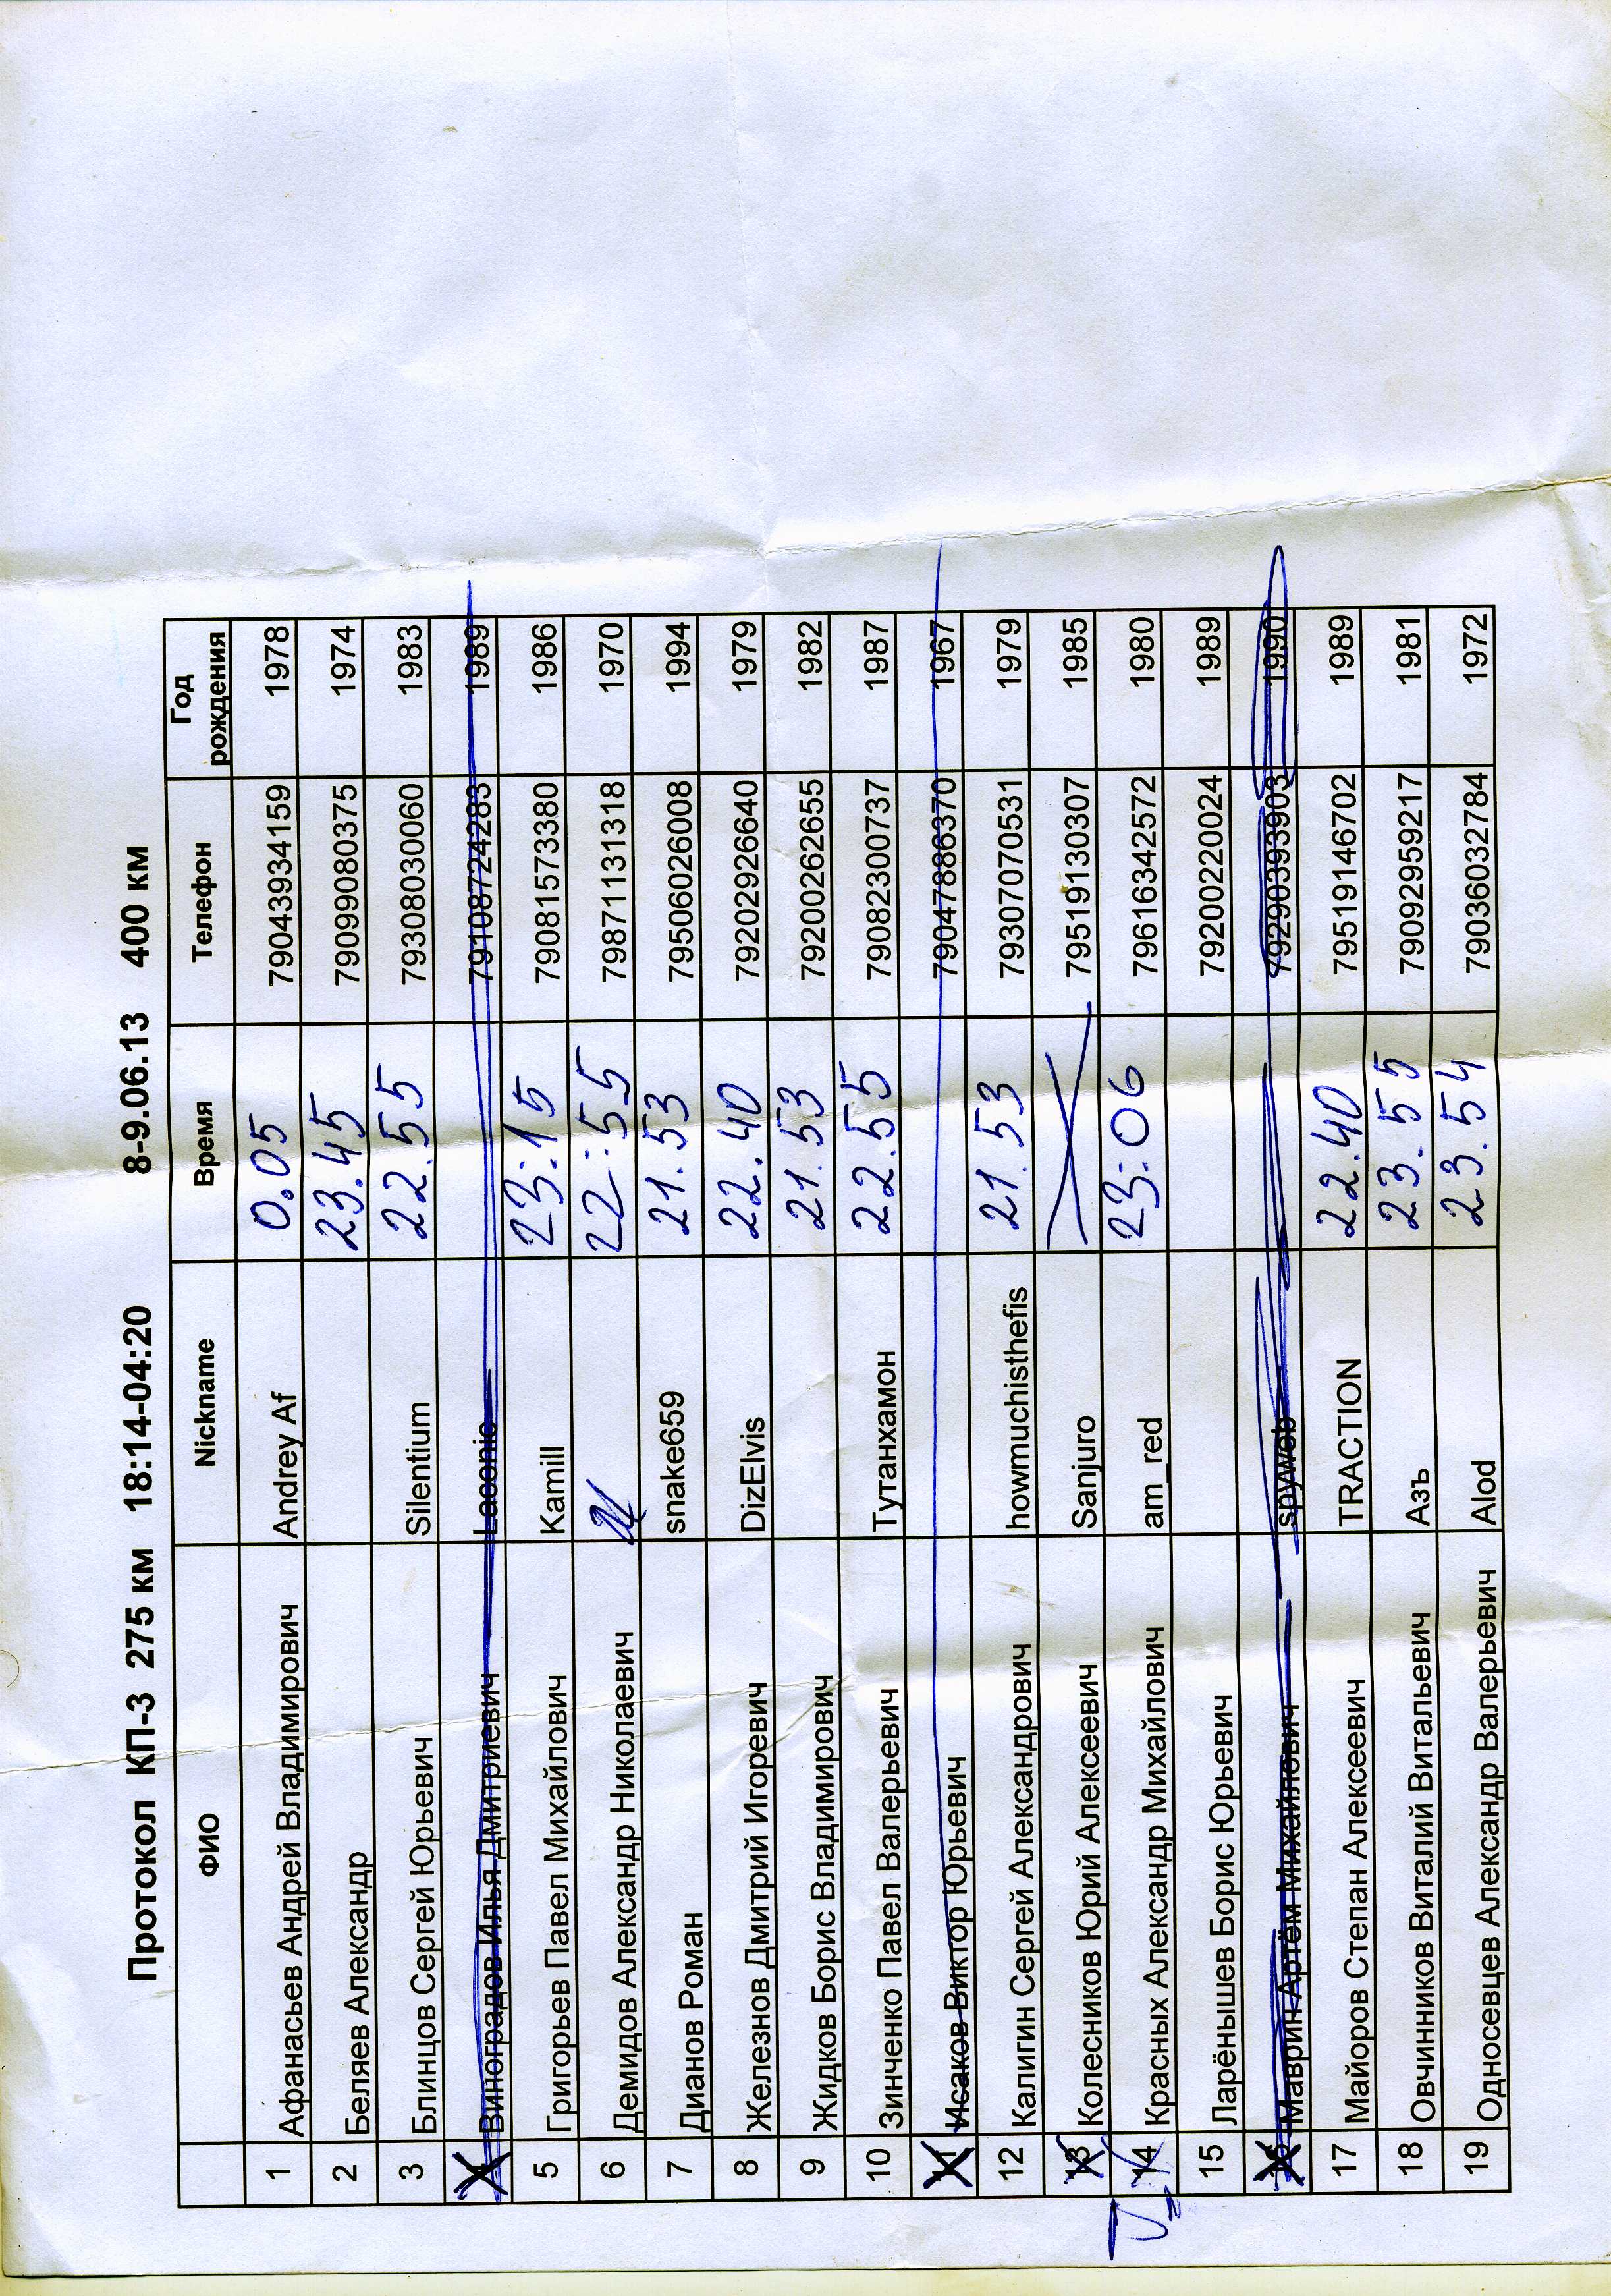 Протокол КП-3 275 км 18:14-04:20 8-9.06.13 400 км
ФИО Nickname Время Телефон Год рождения
1 Афанасьев Андрей Владимирович Andrey Af 0.05 79043934159 1978
2 Беляев Александр 23.45 79099080375 1974
3 Блинцов Сергей Юрьевич Silentium 22.55 79308030060 1983
4 Виноградов Илья Дмитриевич Laoonic 79108724283 1989
5 Григорьев Павел Михайлович Kamill 23:15 79081573380 1986
6 Демидов Александр Николаевич 22:55 79871131318 1970
7 Дианов Роман snake659 21.53 79506026008 1994
8 Железнов Дмитрий Игоревич DizElvis 22.40 79202926640 1979
9 Жидков Борис Владимирович 21.53 79200262655 1982
10 Зинченко Павел Валерьевич Тутанхамон 22.55 79082300737 1987
11 Исаков Виктор Юрьевич 79047886370 1967
12 Калигин Сергей Александрович howmuchisthefis 21.53 79307070531 1979
13 Колесников Юрий Алексеевич Sanjuro 79519130307 1985
14 Красных Александр Михайлович am_red 23:06 79616342572 1980
15 Ларёнышев Борис Юрьевич 79200220024 1989
16 Маврин Артём Михайлович spyweb 79290393903 1990
17 Майоров Степан Алексеевич TRACTION 22.40 79519146702 1989
18 Овчинников Виталий Витальевич Азъ 23.55 79092959217 1981
19 Односевцев Александр Валерьевич Alod 23.54 79036032784 1972